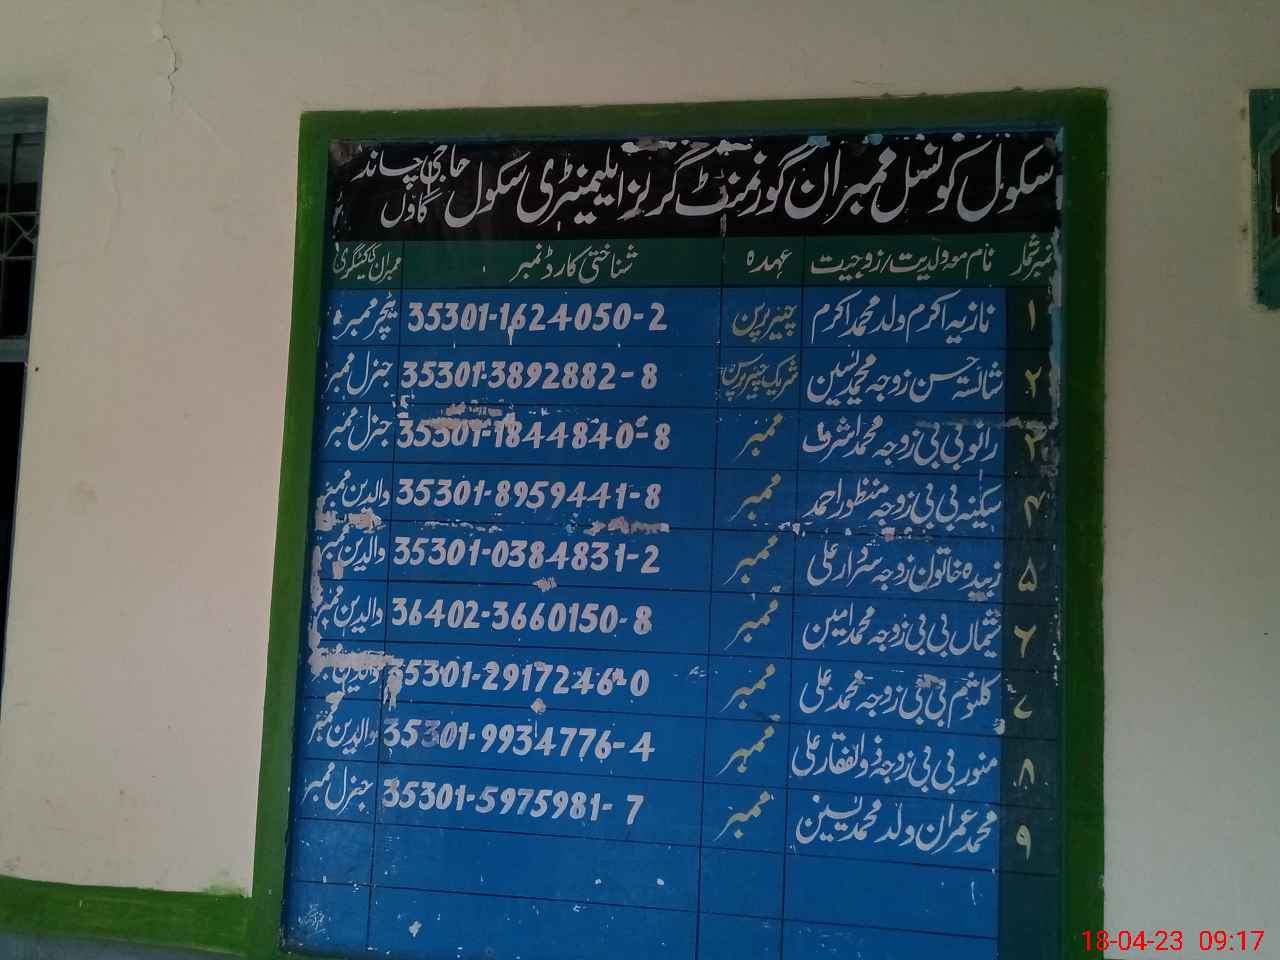 سکول کونسل ممبران گورنمنٹ گرلز ایلیمنٹری سکول حاجی چاند گاؤں
نمبر شمار نام معہ ولدیت/زوجیت عہدہ شناختی کارڈ نمبر ممبران کی کیٹگری
۱ نازیہ اکرم ولد محمد اکرم چیئرپرسن 35301-1624050-2 ٹیچر ممبر
۲ شائستہ حسن زوجہ محمد یٰسین شریک چیئرپرسن 35301-3892882-8 جنرل ممبر
۳ رانو بی بی زوجہ محمد اشرف ممبر 35301-1844840-8 جنرل ممبر
۴ سکینہ بی بی زوجہ منظور احمد ممبر 35301-8959441-8 والدین ممبر
۵ زبیدہ خاتون زوجہ سردار علی ممبر 35301-0384831-2 والدین ممبر
۶ شماں بی بی زوجہ محمد امین ممبر 36402-3660150-8 والدین ممبر
۷ کلثوم بی بی زوجہ محمد علی ممبر 35301-2917246-0 والدین ممبر
۸ منور بی بی زوجہ ذوالفقار علی ممبر 35301-9934776-4 والدین ممبر
۹ محمد عمران ولد محمد یٰسین ممبر 35301-5975981-7 جنرل ممبر
18-04-23 09:17